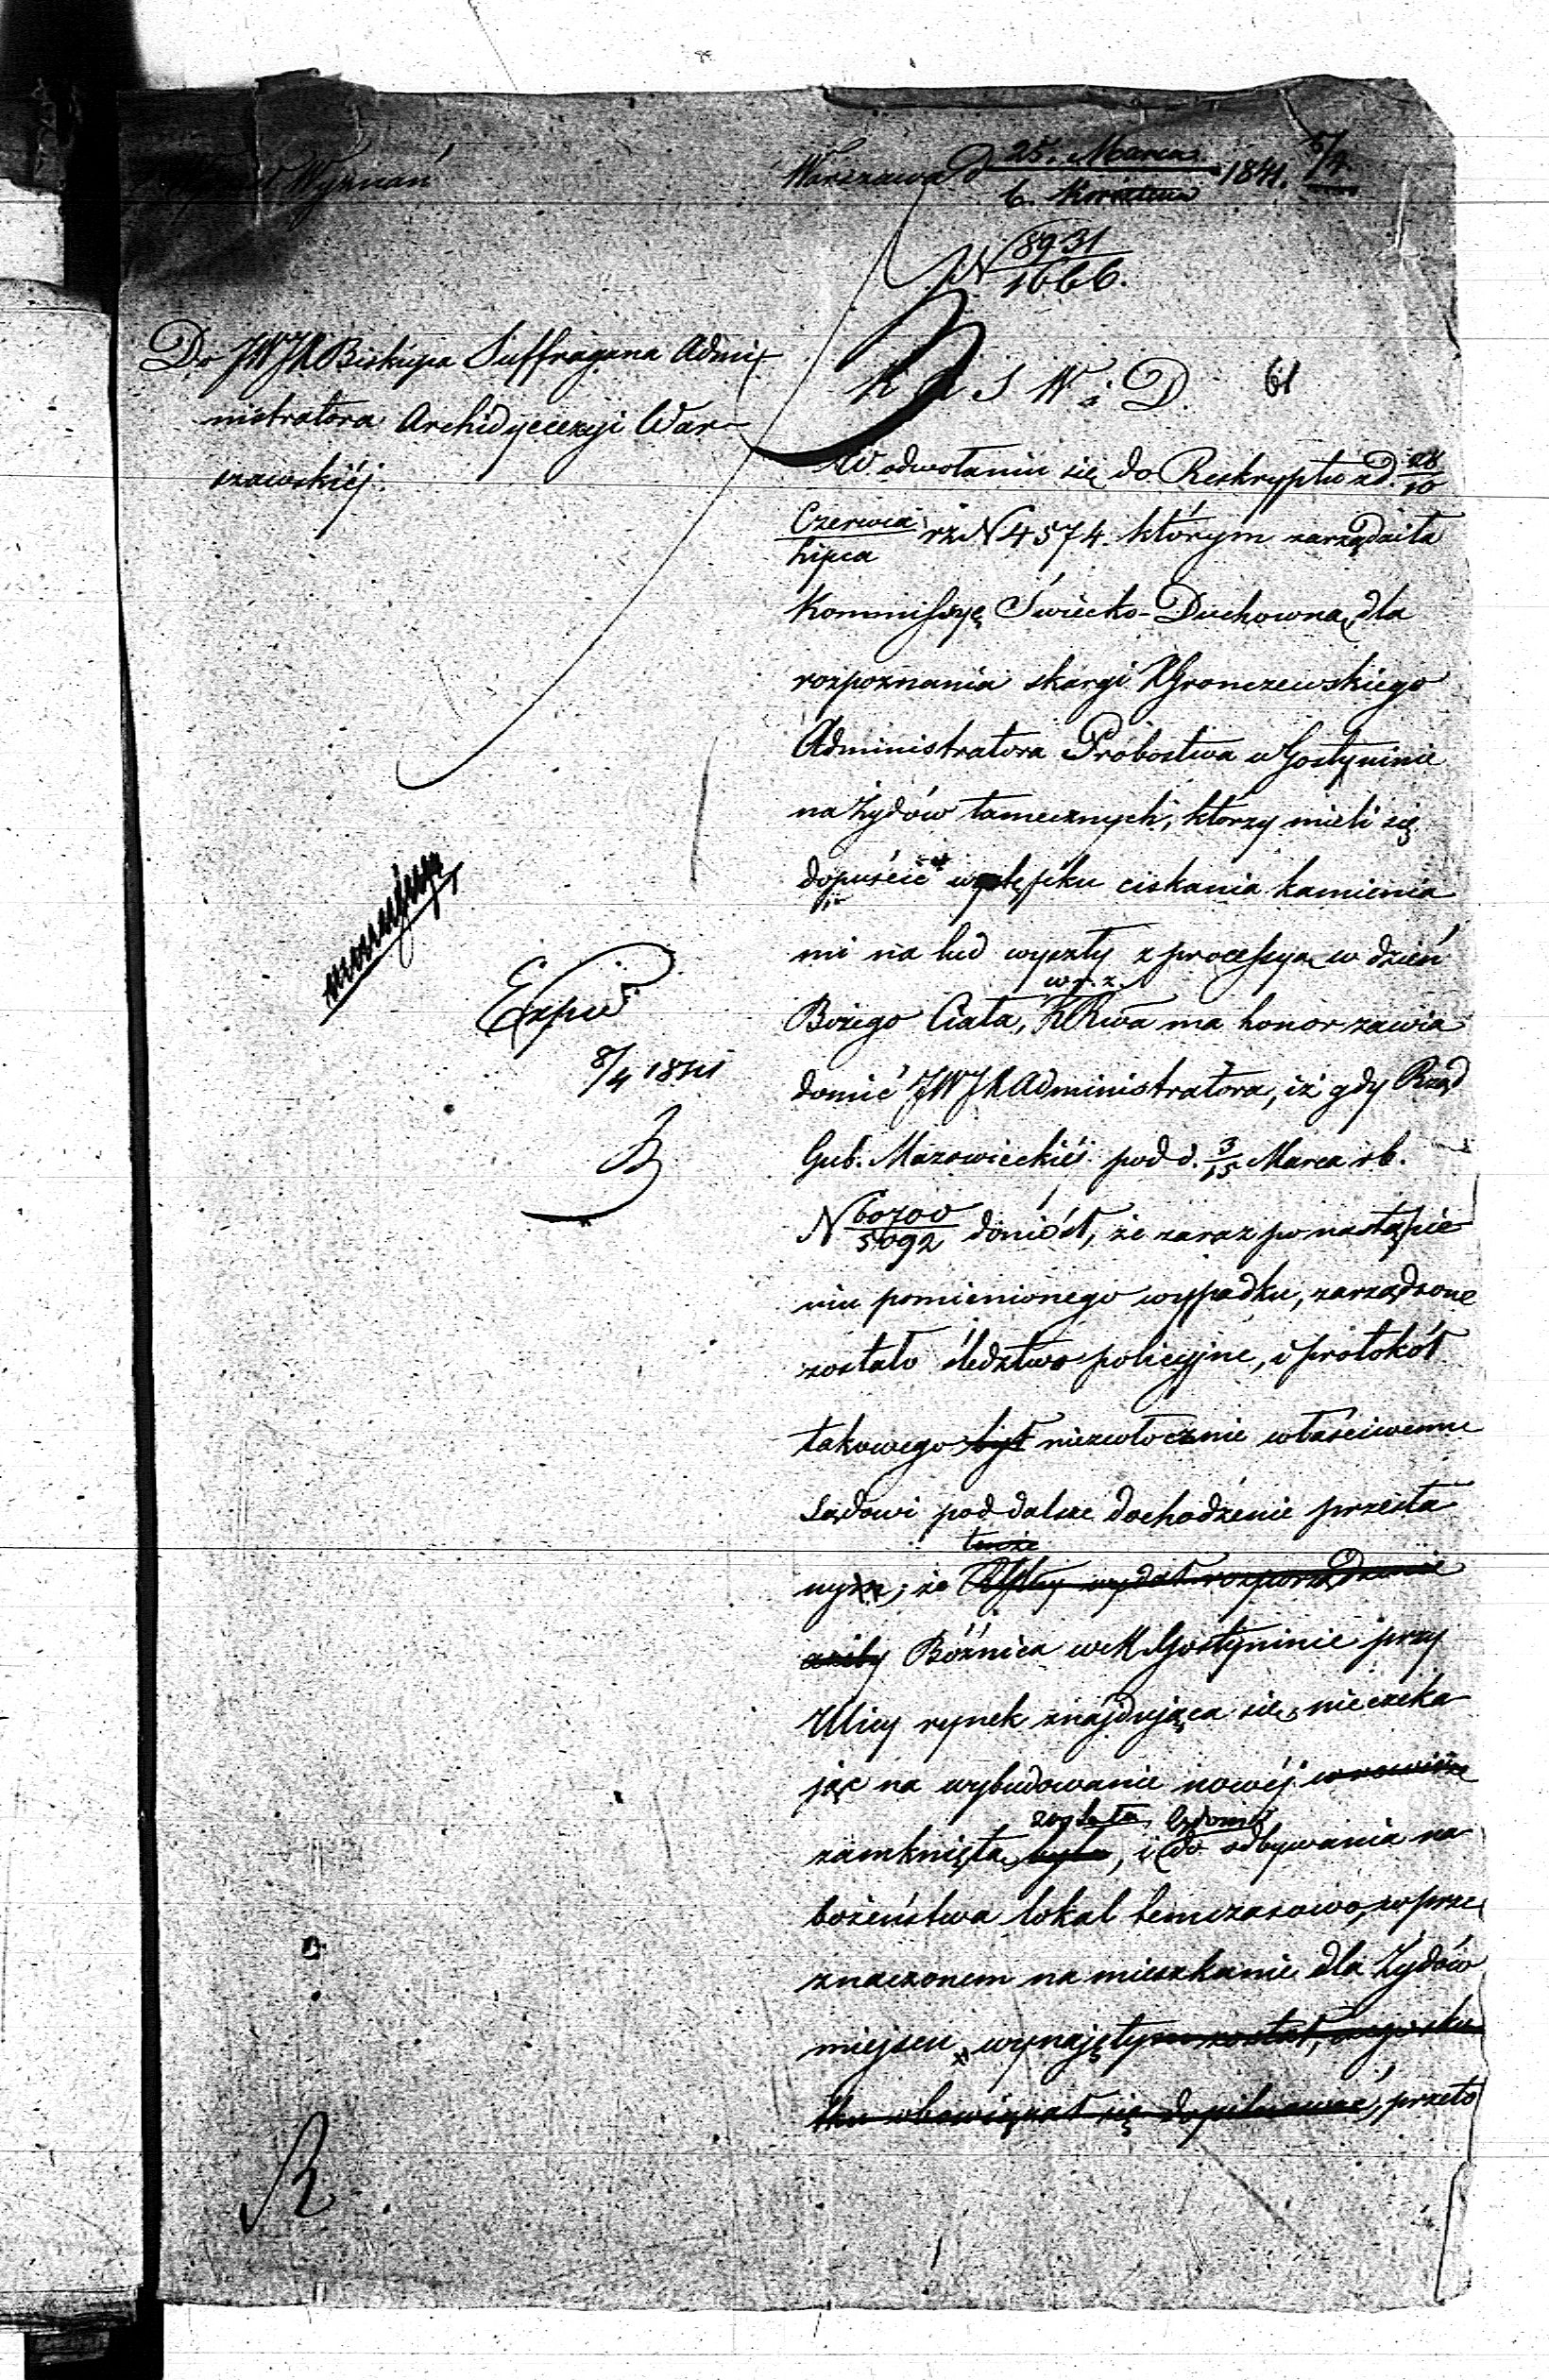 Wydział Wyznań
Warszawa d 25. Marca / 6. Kwietnia 1841. 5/4.
N 8931/1666.
Do JWJX Biskupa Suffragana Admi-
nistratora Archidyecezyi War-
szawskiéj.
K R S W i D. 61
W odwołaniu się do Reskryptu z d. 28/10
Czerwca/Lipca r z N 4574. którym zarządziła
Kommissyę Świecko-Duchowną dla
rozpoznania skargi X Gronczewskiego
Administratora Probostwa w Gostyninie
na Żydów tamecznych, którzy mieli się
dopuścić występku ciskania kamienia
mi na lud wyszły z processyą w dzień
w p. z.
Bożego Ciała, KRwa ma honor zawia
domić JWJX Administratora, iż gdy Rząd
Gub. Mazowieckiéj pod d. 3/15 Marca r b.
N 60700/5092 doniósł, że zaraz po nastąpie
niu pomienionego wypadku, zarządzone
zostało śledztwo policyjne, i protokół
takowego był niezwłocznie właściwemu
Sądowi pod dalsze dochodzenie przesła
ny; że wydał rozporządzenie
ażeby Bóżnica w M. Gostyninie przy
Ulicy rynek znajdująca się, nieczeka
jąc na wybudowanie nowéj
została
zamknięta była, i do odbywania na
bożeństwa lokal temczasowo, w prze
znaczonem na mieszkanie dla Żydów
miejscu wynajętym został, czego sku
tku obowiązał się dopilnować, przeto
Exped.
8/4 1841